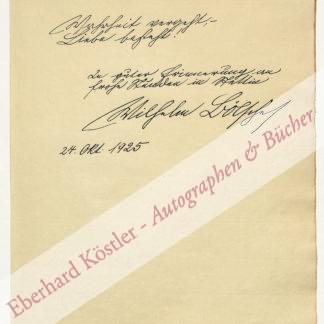 Wahrheit vergeht,–
Liebe besteht!
In guter Erinnerung an
frohe Stunden in Stettin
Wilhelm Bölsche
24 Okt. 1925
Eberhard Köstler - Autographen & Bücher